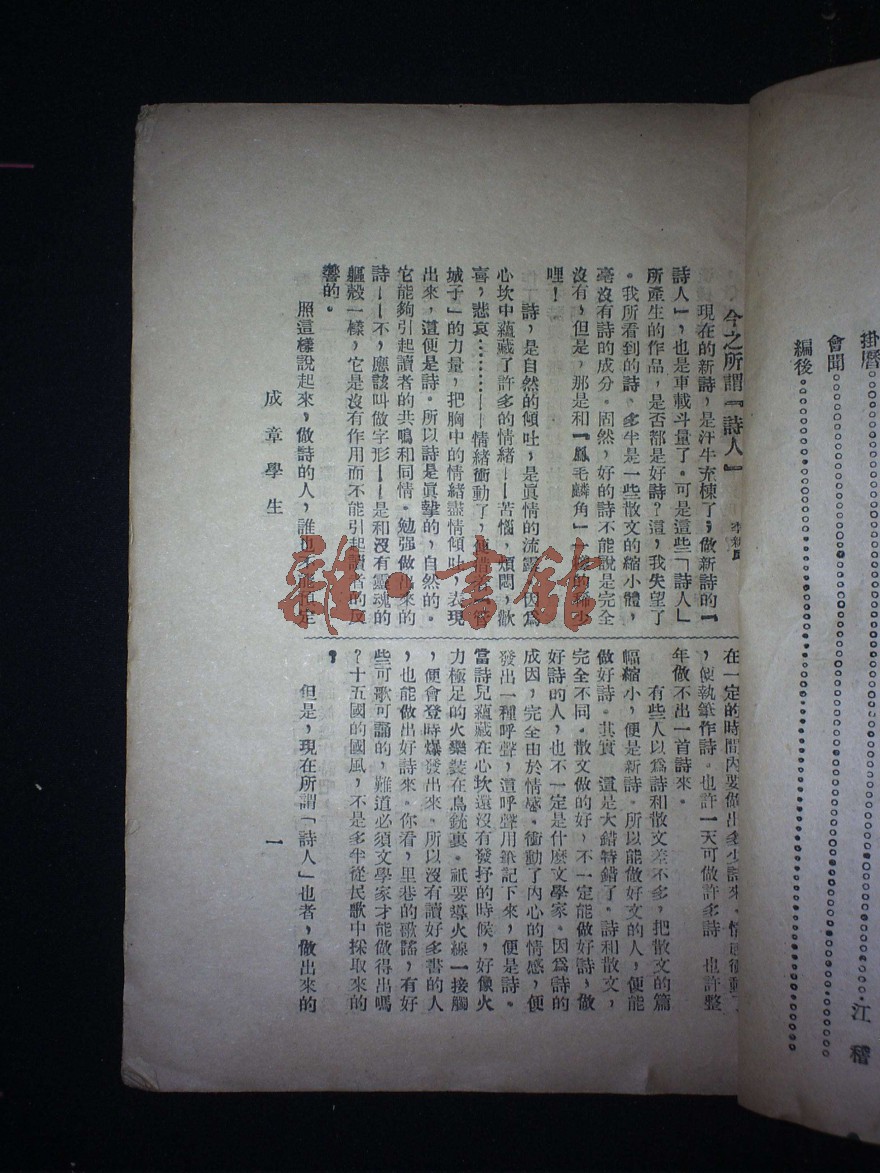 掛曆。。。。。。。。。。。。。。。。。。。。。。。。江稽
會聞。。。。。。。。。。。。。。。。。。。。。。。。
編後。。。。。。。。。。。。。。。。。。。。。。。。
今之所謂『詩人』
現在的新詩，是汗牛充棟了；做新詩的「
詩人」，也是車載斗量了。可是這些「詩人」
所產生的作品，是否都是好詩？這，我失望了
。我所看到的詩、多半是一些散文的縮小體，
毫沒有詩的成分。固然，好的詩不能說是完全
沒有，但是，那是和『鳳毛麟角」一樣的稀少
哩！
詩，是自然的傾吐，是眞情的流露，因爲
心坎中蘊藏了許多的情緒——苦惱，煩悶，歡
喜，悲哀………——情緒衝動了，便借着「管
城子」的力量，把胸中的情緒盡情傾吐，表現
出來，這便是詩。所以詩是眞摯的，自然的。
它能夠引起讀者的共鳴和同情。勉强做出來的
詩——不，應該叫做字形——是和沒有靈魂的
軀殼一樣，它是沒有作用而不能引起讀者的反
響的。
照這樣說起來，做詩的人，誰也不能預定
在一定的時間內要做出多少詩來。情感衝動了
，便執筆作詩。也許一天可做許多詩 也許整
年做不出一首詩來。
有些人以爲詩和散文差不多，把散文的篇
幅縮小，便是新詩。所以能做好文的人，便能
做好詩。其實 這是大錯特錯了。詩和散文，
完全不同。散文做的好，不一定能做好詩，做
好詩的人，也不一定是什麽文學家。因爲詩的
成因，完全由於情感。衝動了內心的情感，便
發出一種呼聲，這呼聲用筆記下來，便是詩。
當詩兒蘊藏在心坎還沒有發抒的時候，好像火
力極足的火藥裝在鳥銃裏。祇要導火線一接觸
，便會登時爆發出來。所以沒有讀好多書的人
，也能做出好詩來。你看，里巷的歌謠，有好
些可歌可誦的，難道必須文學家才能做得出嗎
？十五國的國風，不是多半從民歌中採取來的
？
但是，現在所謂「詩人」也者，做出來的
成章學生
一
雜·書館